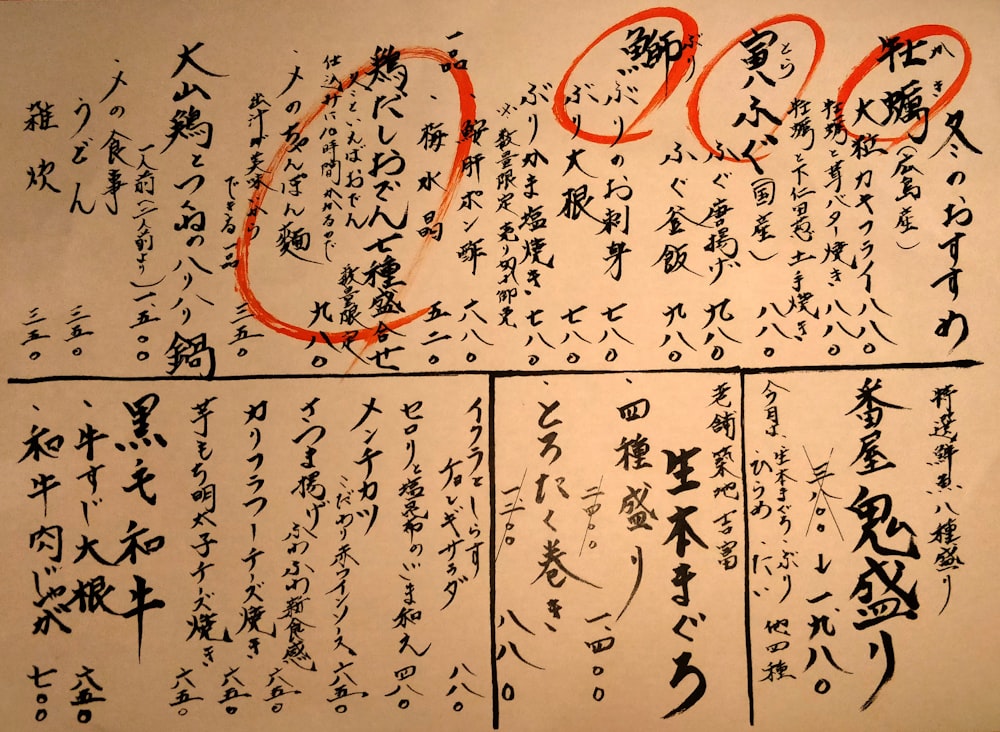 冬のおすすめ
かき
牡蠣(広島産)
大粒カキフライ 八八〇
牡蠣と茸バター焼き 八八〇
牡蠣と下仁田葱土手焼き 八八〇
とら
寅八ふぐ(国産)
ふぐ唐揚げ 九八〇
ふぐ釜飯 九八〇
ぶり
鰤
ぶりのお刺身 七八〇
ぶり大根 七八〇
ぶりかま塩焼き 七八〇
※数量限定 売り切れ御免
一品
、鮟肝ポン酢 六八〇
、梅水晶 五二〇
鶏だしおでん七種盛合せ
冬といえばおでん
仕込みに10時間かかるので
数量限定 九八〇
〆のちゃんぽん麺 三五〇
出汁が美味いから
できる一品
大山鶏とつくねのハリハリ鍋
一人前(二人前より) 一、五〇〇
、〆の食事
うどん 三五〇
雑炊 三五〇
特選鮮魚八種盛り
番屋鬼盛り
三八〇〇→一九八〇
今月は、生本まぐろ・ぶり
ひらめ・たい 他四種
老舗築地吉富
生本まぐろ
、四種盛り 二、四〇〇 一、四〇〇
、とろたく巻き 一、二〇〇 八八〇
イクラとしらす
チョレギサラダ 八八〇
セロリと塩昆布のごま和え 四八〇
メンチカツ
こだわり赤ワインソース 六五〇
さつま揚げ ふわふわ新食感 六五〇
カリフラワーチーズ焼き 六五〇
芋もち明太子チーズ焼き 六五〇
黒毛和牛
、牛すじ大根 六五〇
、和牛肉じゃが 七〇〇